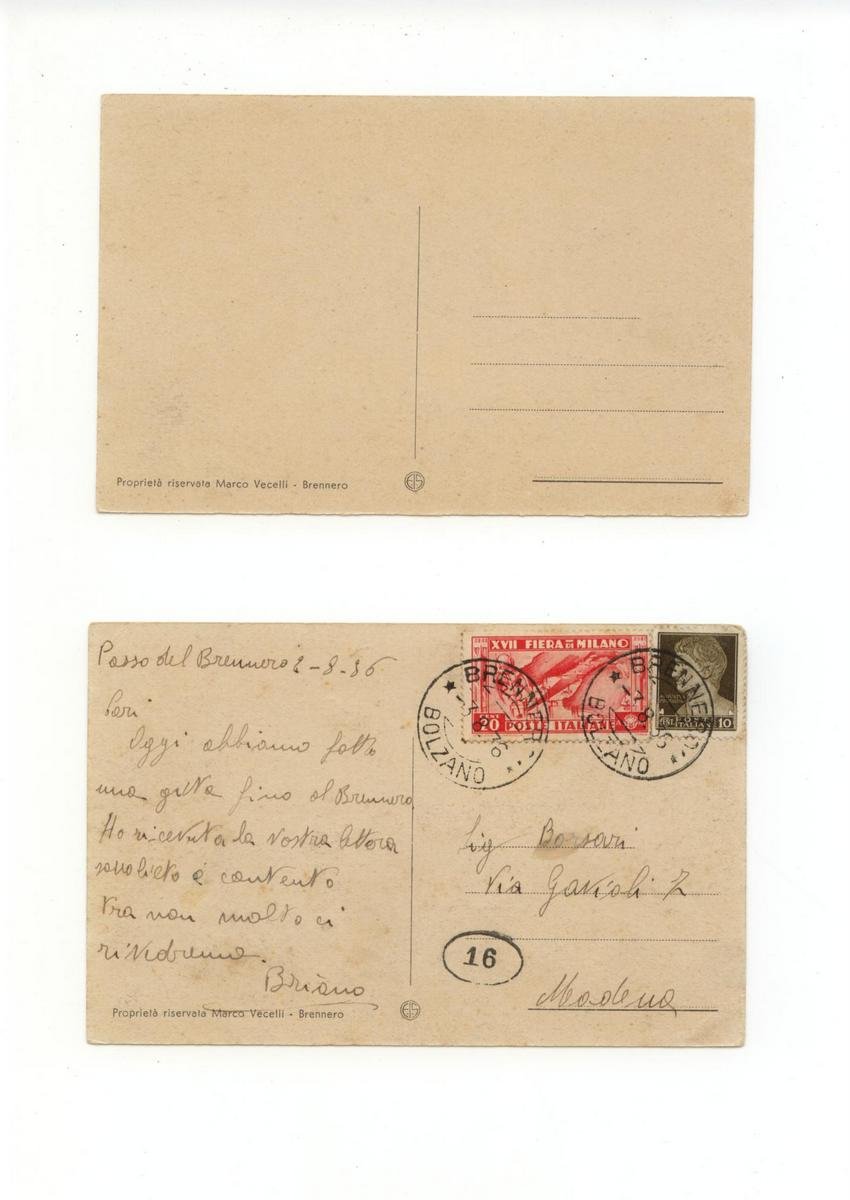 Proprietà riservata Marco Vecelli - Brennero
Passo del Brennero 2-8-36
Cari
Oggi abbiamo fatto
una gitta fino al Brennero
Ho ricevuta la vostra lettera
sono lieto e contento
tra non molto ci
rivedremo.
Briano
Proprietà riservata Marco Vecelli - Brennero
XVII FIERA DI MILANO
20 POSTE ITALIANE
10
BRENNERO
BOLZANO
BRENNERO
BOLZANO
Sig Borsari
Via Gavioli 7
16
Modena